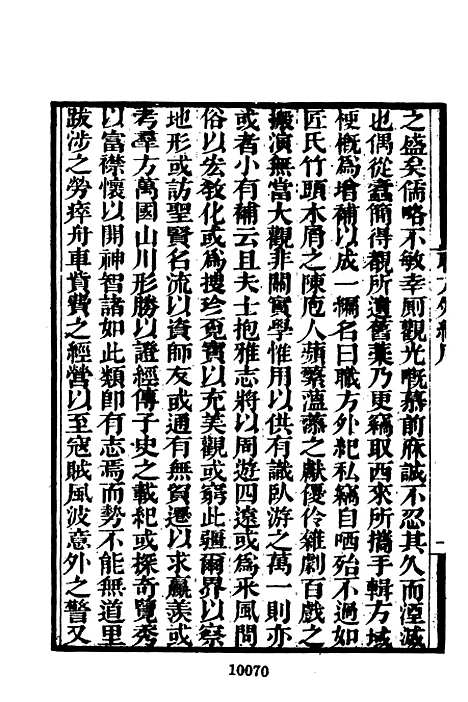 職方外紀序
一
之盛矣儒略不敏幸厠觀光慨慕前庥誠不忍其久而湮滅
也偶從蠹簡得覩所遺舊藁乃更竊取西來所攜手輯方域
梗槪爲增補以成一編名曰職方外紀私竊自哂殆不過如
匠氏竹頭木屑之陳庖人蘋蘩薀藻之獻優伶雜劇百戲之
搬演無當大觀非關實學惟用以供有識臥游之萬一則亦
或者小有補云且夫士抱雅志將以周遊四遠或爲采風問
俗以宏敎化或爲搜珍覓寶以充美觀或窮此疆爾界以察
地形或訪聖賢名流以資師友或通有無貿遷以求贏羡或
考羣方萬國山川形勝以證經傳子史之載紀或探奇覽秀
以富襟懷以開神智諸如此類卽有志焉而勢不能無道里
跋涉之勞瘁舟車貲費之經營以至寇賊風波意外之警又
10070